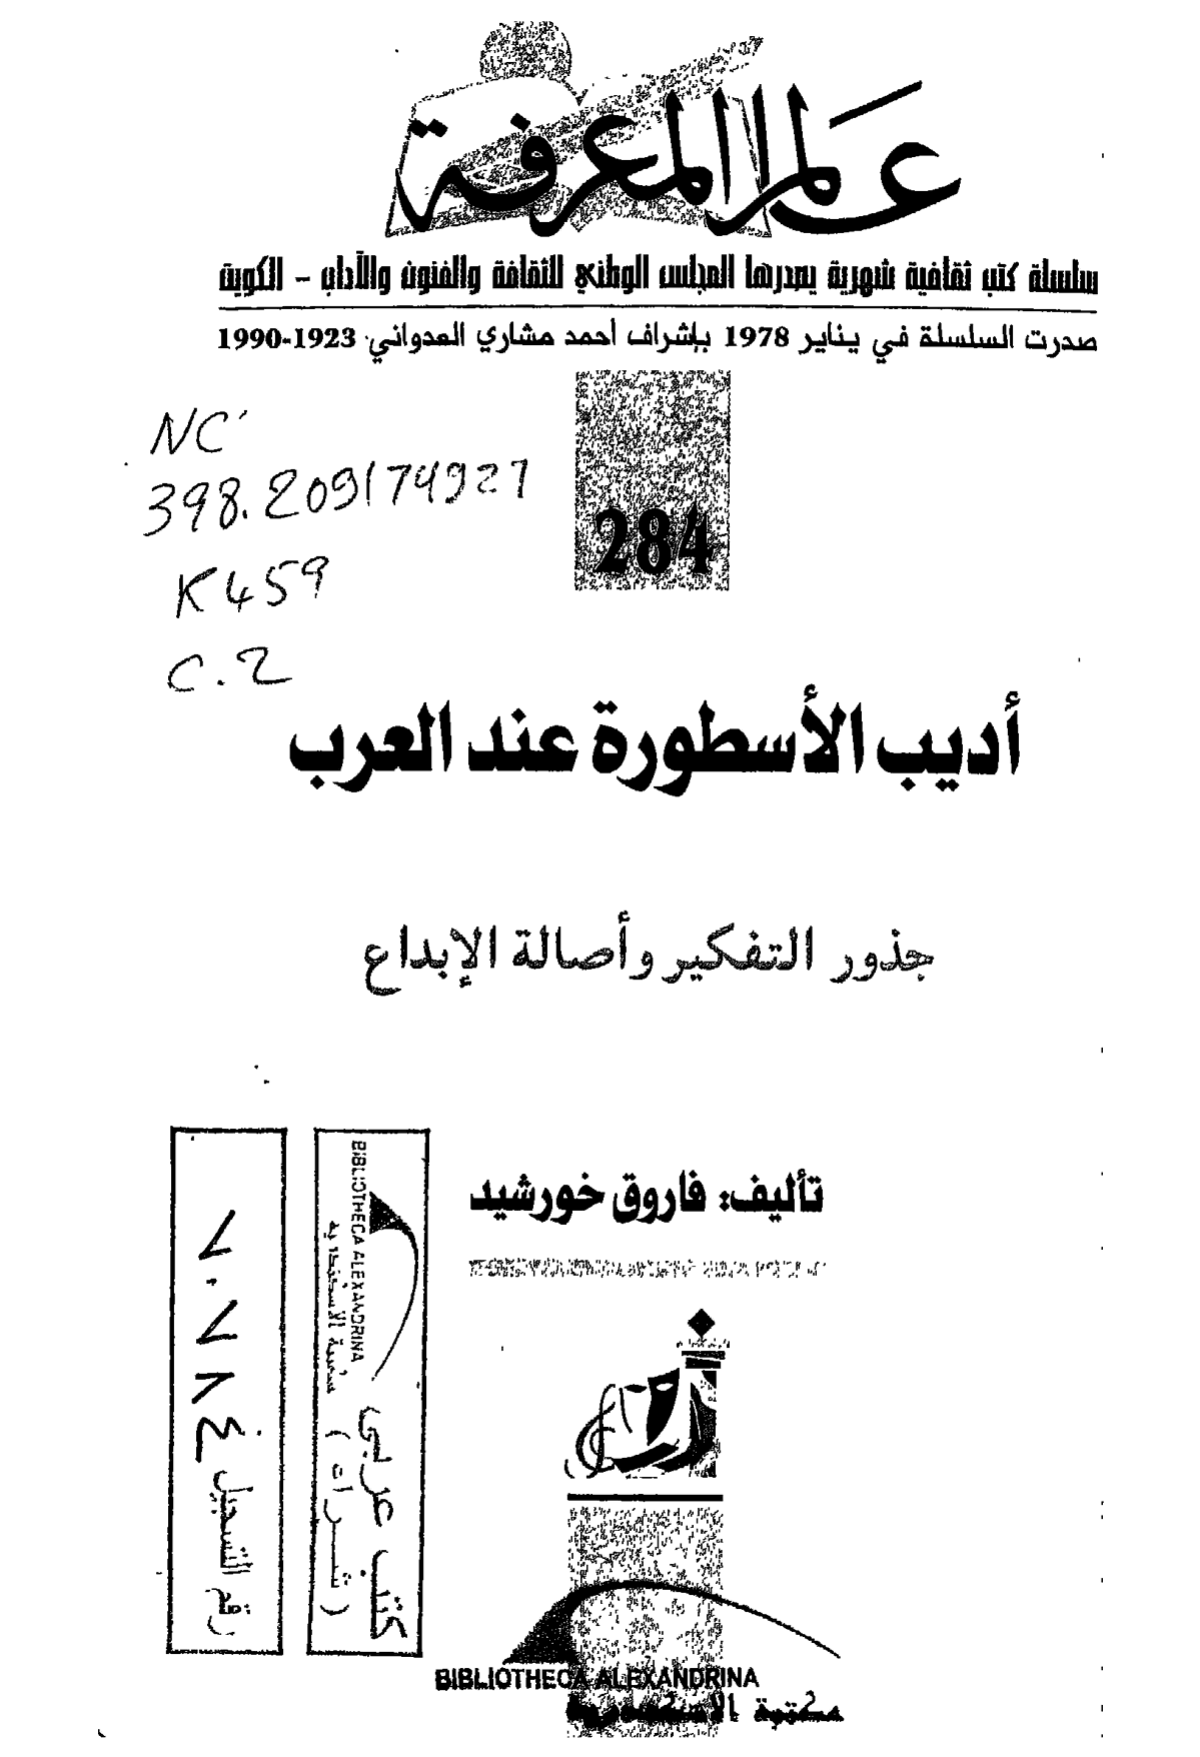 عالم المعرفة
سلسلة كتب ثقافية شهرية يصدرها المجلس الوطني للثقافة والفنون والآداب – الكويت
صدرت السلسلة في يناير 1978 بإشراف أحمد مشاري العدواني 1923-1990
NC
398.209174927
K459
C.2
284
أديب الأسطورة عند العرب
جذور التفكير وأصالة الإبداع
تأليف: فاروق خورشيد
BIBLIOTHECA ALEXANDRINA
مكتبة الاسكندرية
كتب عربى
(شراء)
رقم التسجيل ٧٠٧٨٤
BIBLIOTHECA ALEXANDRINA
مكتبة الاسكندرية